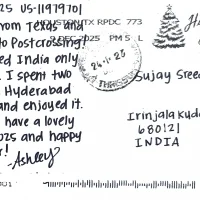 25 US-11979701
HOUSTON TX RPDC 773
9 DEC 2025 PM 5 L
rom Texas and
to Postcrossing!
ed India only
. I spent two
Hyderabad
and enjoyed it.
have a lovely
025 and happy
r!
-Ashley
24-1-25
THRISSUR
Sujay Sree
Irinjalakuda
680121
INDIA